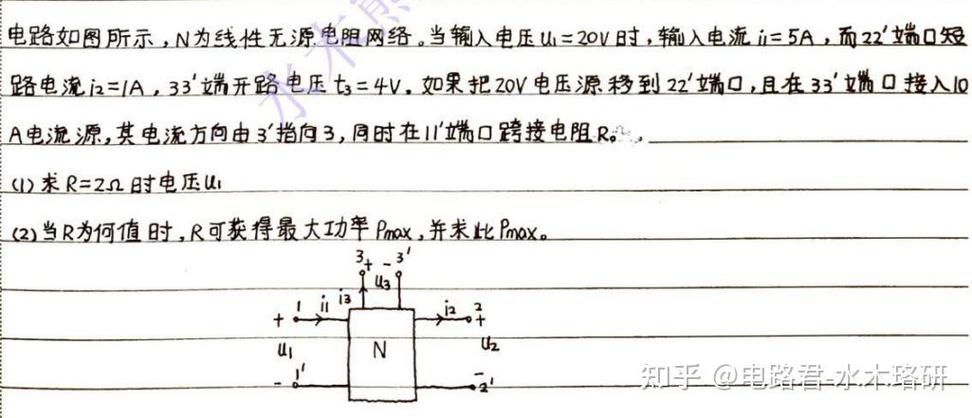 电路如图所示,N为线性无源电阻网络。当输入电压U₁=20V时,输入电流i₁=5A,而22′端口短
路电流i₂=1A,33′端开路电压t₃=4V。如果把20V电压源移到22′端口,且在33′端口接入10
A电流源,其电流方向由3′指向3,同时在11′端口跨接电阻R。
(1)求R=2Ω时电压U₁
(2)当R为何值时,R可获得最大功率Pmax,并求此Pmax。
3 + - 3′
U₃
i₃
+ 1 i₁ i₂ 2 +
U₁ N U₂
- 1′ - 2′
知乎 @电路君-水木珞研
水木